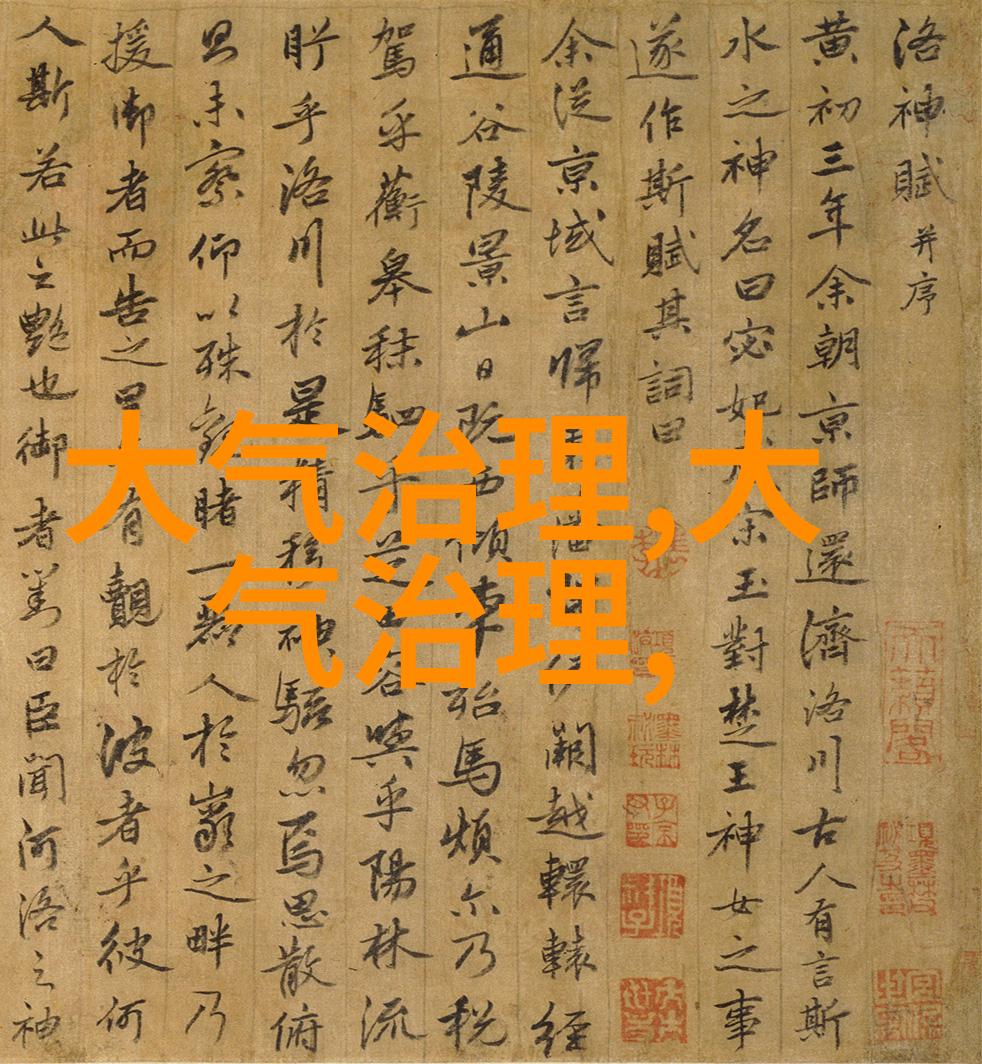 洛神賦 并序
黄初三年余朝京師還濟洛川古人有言斯
水之神名曰宓妃
宋玉對楚王神女之事
遂作斯賦其詞曰
余從京域言歸
伊闕越轘轅經
通谷陵景山日既西傾車殆馬煩尔乃税
駕乎蘅皋秣駟乎芝
容與乎陽林流
眄乎洛川於是精移神駭忽焉思散俯
則未察仰以殊觀睹一麗人於巖之畔乃
援御者而告之曰
有覿於彼者乎彼何
人斯若此之豔也御者對曰臣聞河洛之神
大气治理,大
气治理,